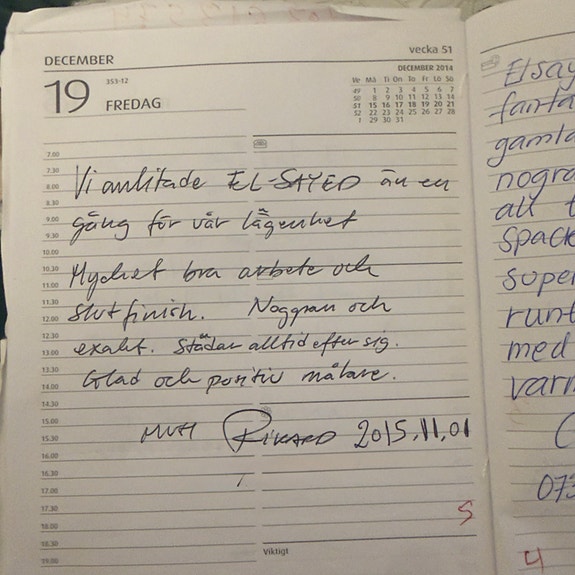 DECEMBER
vecka 51
19
353-12
FREDAG
DECEMBER 2014
Ve Må Ti On To Fr Lö Sö
49 1 2 3 4 5 6 7
50 8 9 10 11 12 13 14
51 15 16 17 18 19 20 21
52 22 23 24 25 26 27 28
1 29 30 31
7.00
7.30
8.00
8.30
9.00
9.30
10.00
10.30
11.00
11.30
12.00
12.30
13.00
13.30
14.00
14.30
15.00
15.30
16.00
16.30
17.00
17.30
18.00
18.30
19.00
Vi anlitade EL-SAYED än en
gång för vår lägenhet
Mycket bra arbete och
slutfinish. Noggran och
exakt. Städar alltid efter sig.
Glad och positiv målare.
MVH Rikard 2015.11.01
5
Viktigt
Elsay
fanta
gamla
nogra
att
spack
super
runt
med
varm
073
4